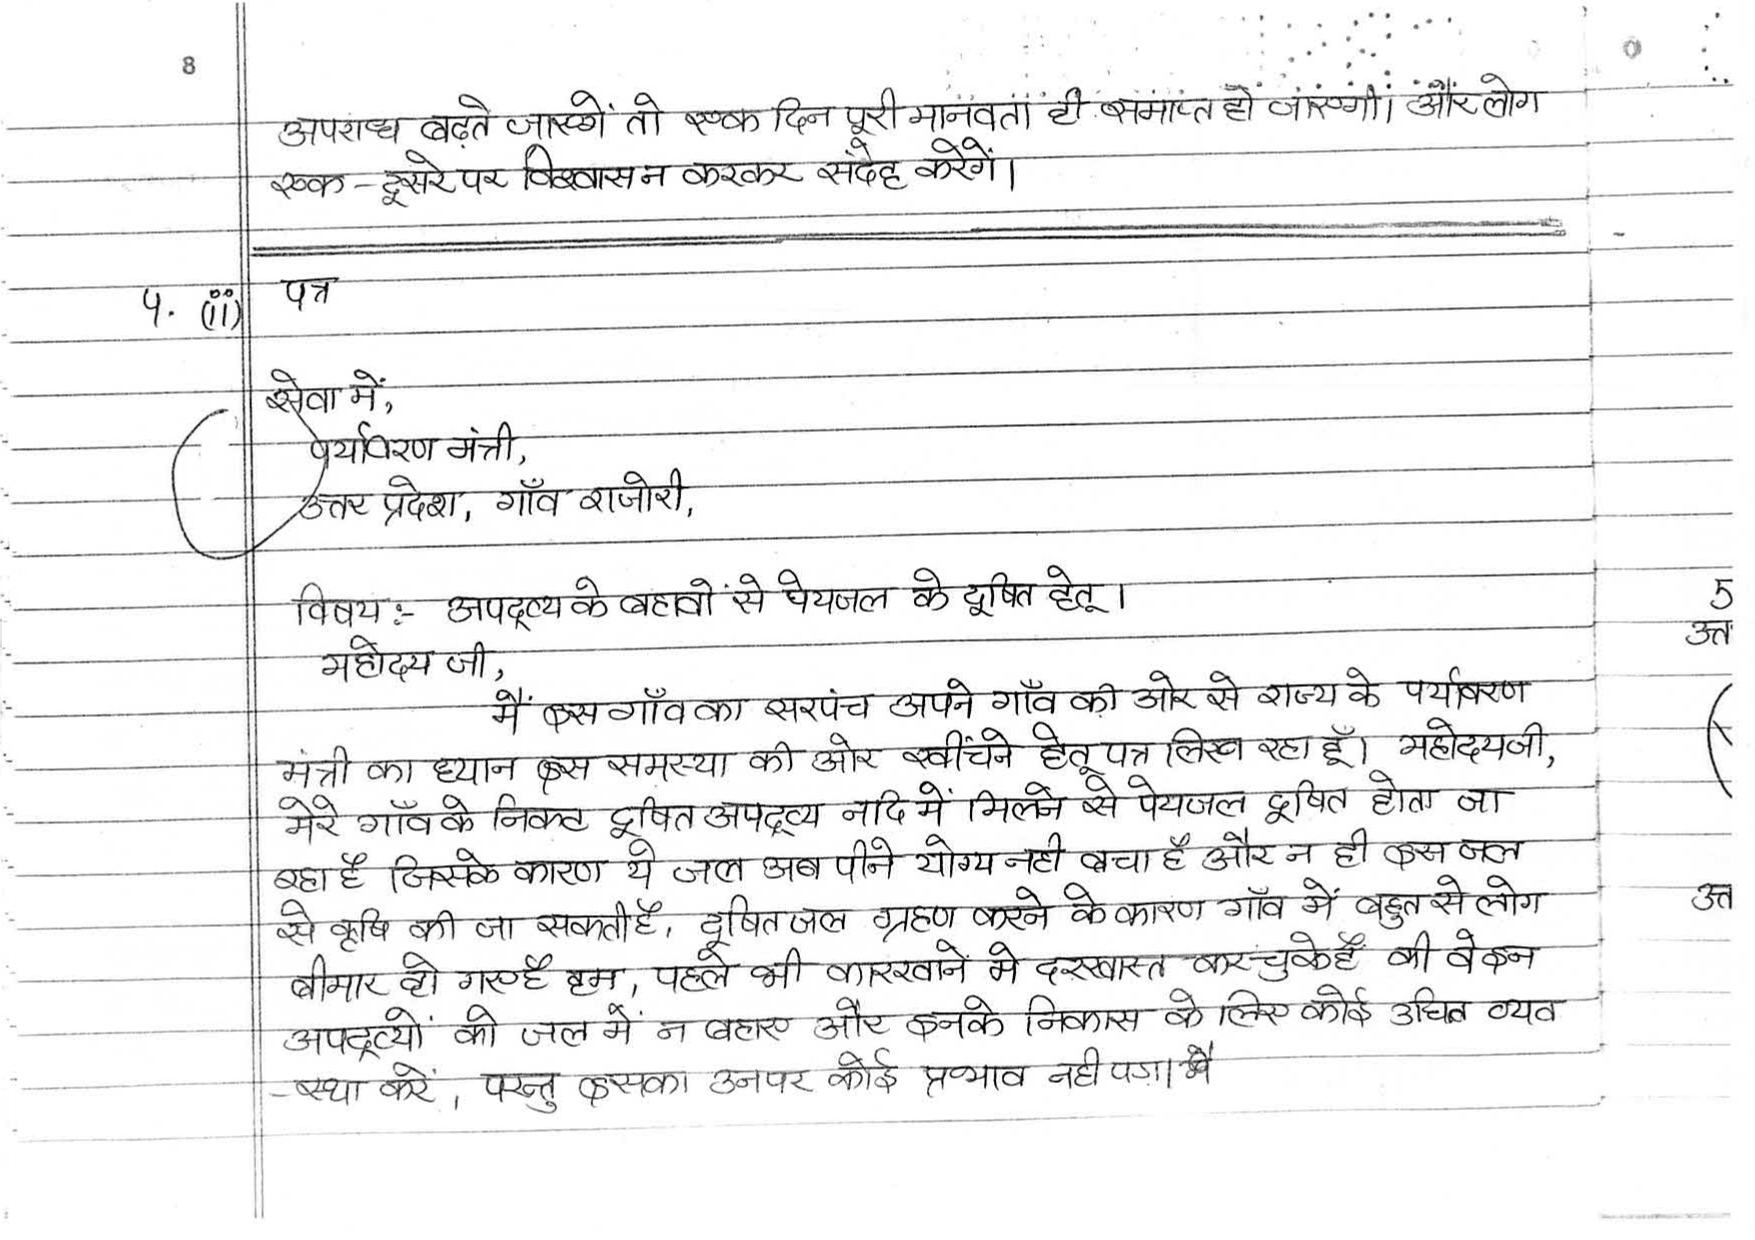 8
अपराध बढ़ते जाएगें तो एक दिन पूरी मानवता ही समाप्त हो जाएगी। और लोग
एक - दूसरे पर विश्वास न करकर संदेह करेगें।
4. (ii) पत्र
सेवा में,
पर्यावरण मंत्री,
उत्तर प्रदेश, गाँव राजोरी,
विषय :- अपद्रव्य के बहावों से पेयजल के दूषित हेतू।
महोदय जी,
मैं इस गाँव का सरपंच अपने गाँव की ओर से राज्य के पर्यावरण
मंत्री का ध्यान इस समस्या की ओर खींचने हेतू पत्र लिख रहा हूँ। महोदयजी,
मेरे गाँव के निकट दूषित अपद्रव्य नदि में मिलने से पेयजल दूषित होता जा
रहा है जिसके कारण ये जल अब पीने योग्य नही बचा है और न ही इस जल
से कृषि की जा सकती है, दूषित जल ग्रहण करने के कारण गाँव में बहुत से लोग
बीमार हो गए है हम, पहले भी कारखाने मे दरखास्त कर चुके है की वे इन
अपद्रव्यो को जल में न बहाए और इनके निकास के लिए कोई उचित व्यव
-स्था करें, परन्तु इसका उनपर कोई प्रभाव नही पड़ा।
5
उत्त
उत्त